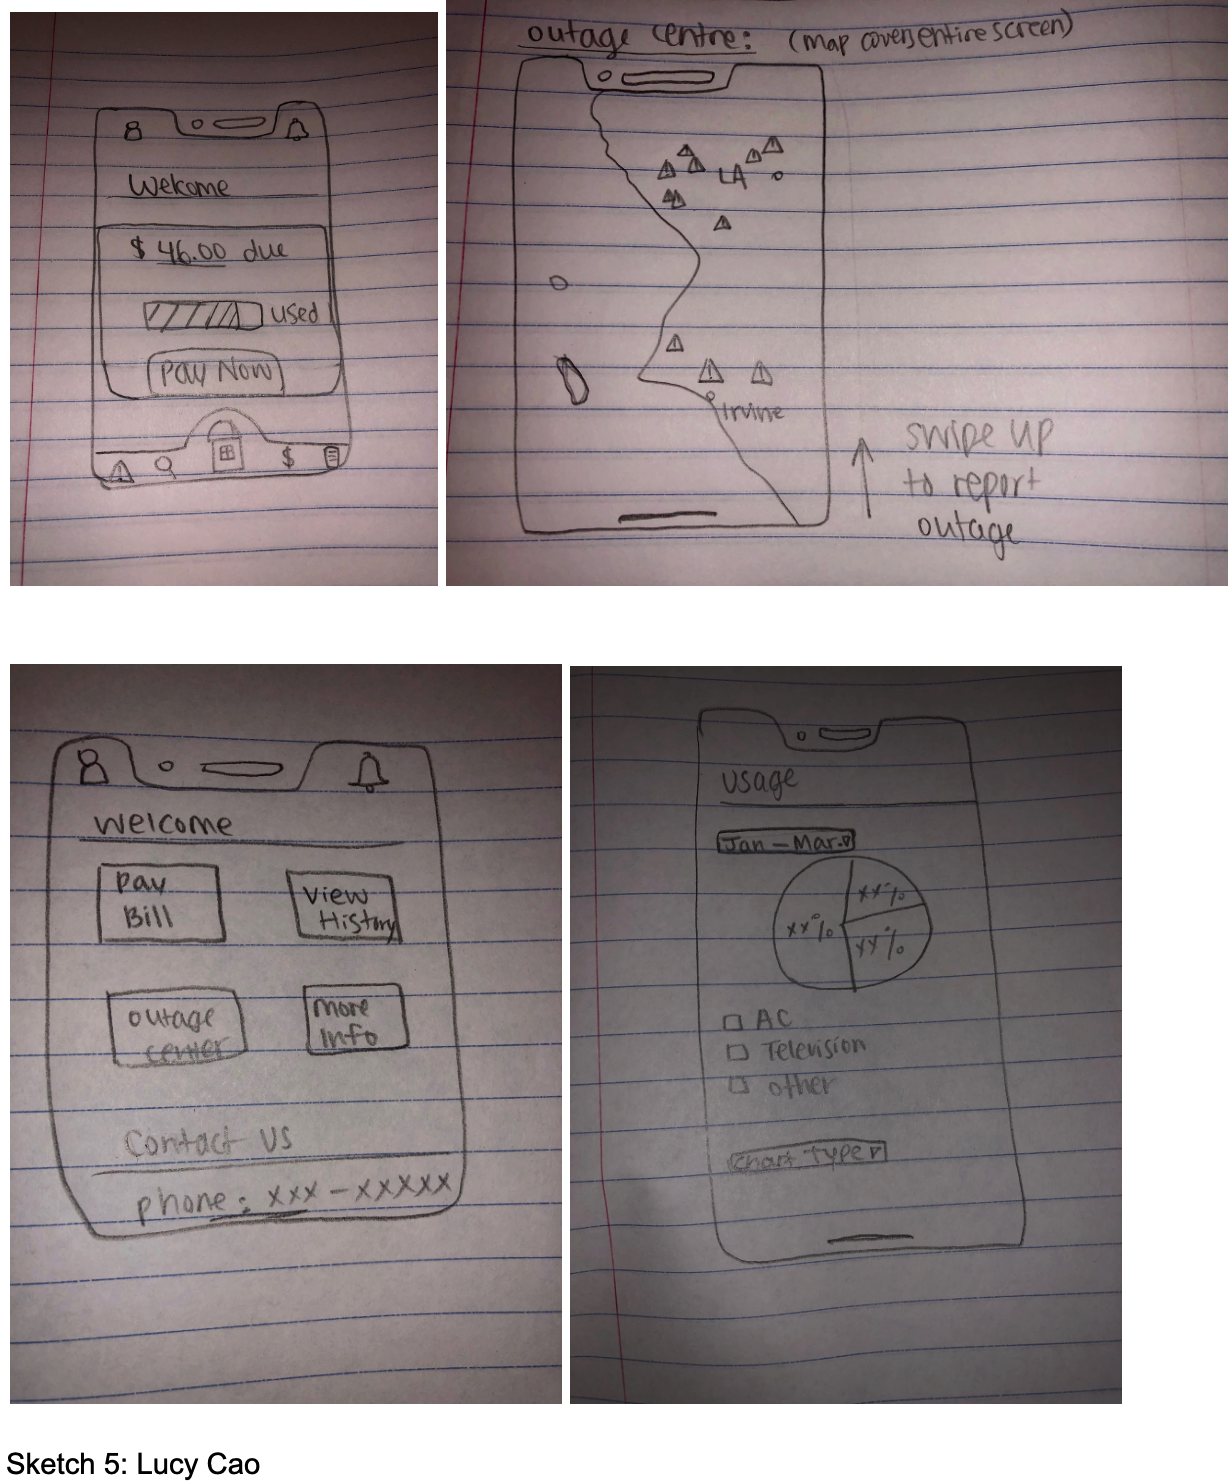 Welcome
$ 46.00 due
used
Pay Now
$
outage centre: (map covers entire screen)
LA
Irvine
swipe up
to report
outage
Welcome
Pay
Bill
View
History
outage
center
More
Info
Contact us
phone: xxx-xxxxx
usage
Jan - Mar.
xx%
xx%
xx%
AC
Television
other
Chart Type
Sketch 5: Lucy Cao